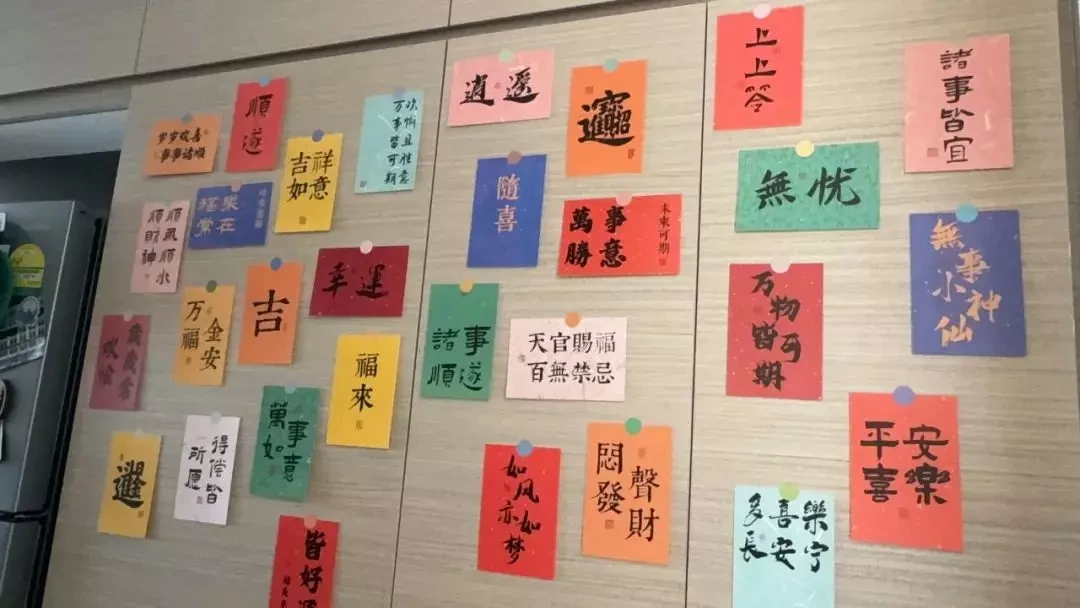 岁岁欢喜
事事诸顺
順遂
吉祥
如意
万事皆可期
順風順水
順財神
万福
金安
吉
幸運
歲歲常
歡愉
福來
得偿皆
所愿
萬事
如意
皆好運
逍遥
隨喜
萬事
勝意
未來可期
諸事
順遂
天官賜福
百無禁忌
如风
亦如梦
悶聲
發財
上上签
諸事皆宜
無忧
無事
小神仙
万物
皆可期
平安
喜樂
多喜樂
長安宁